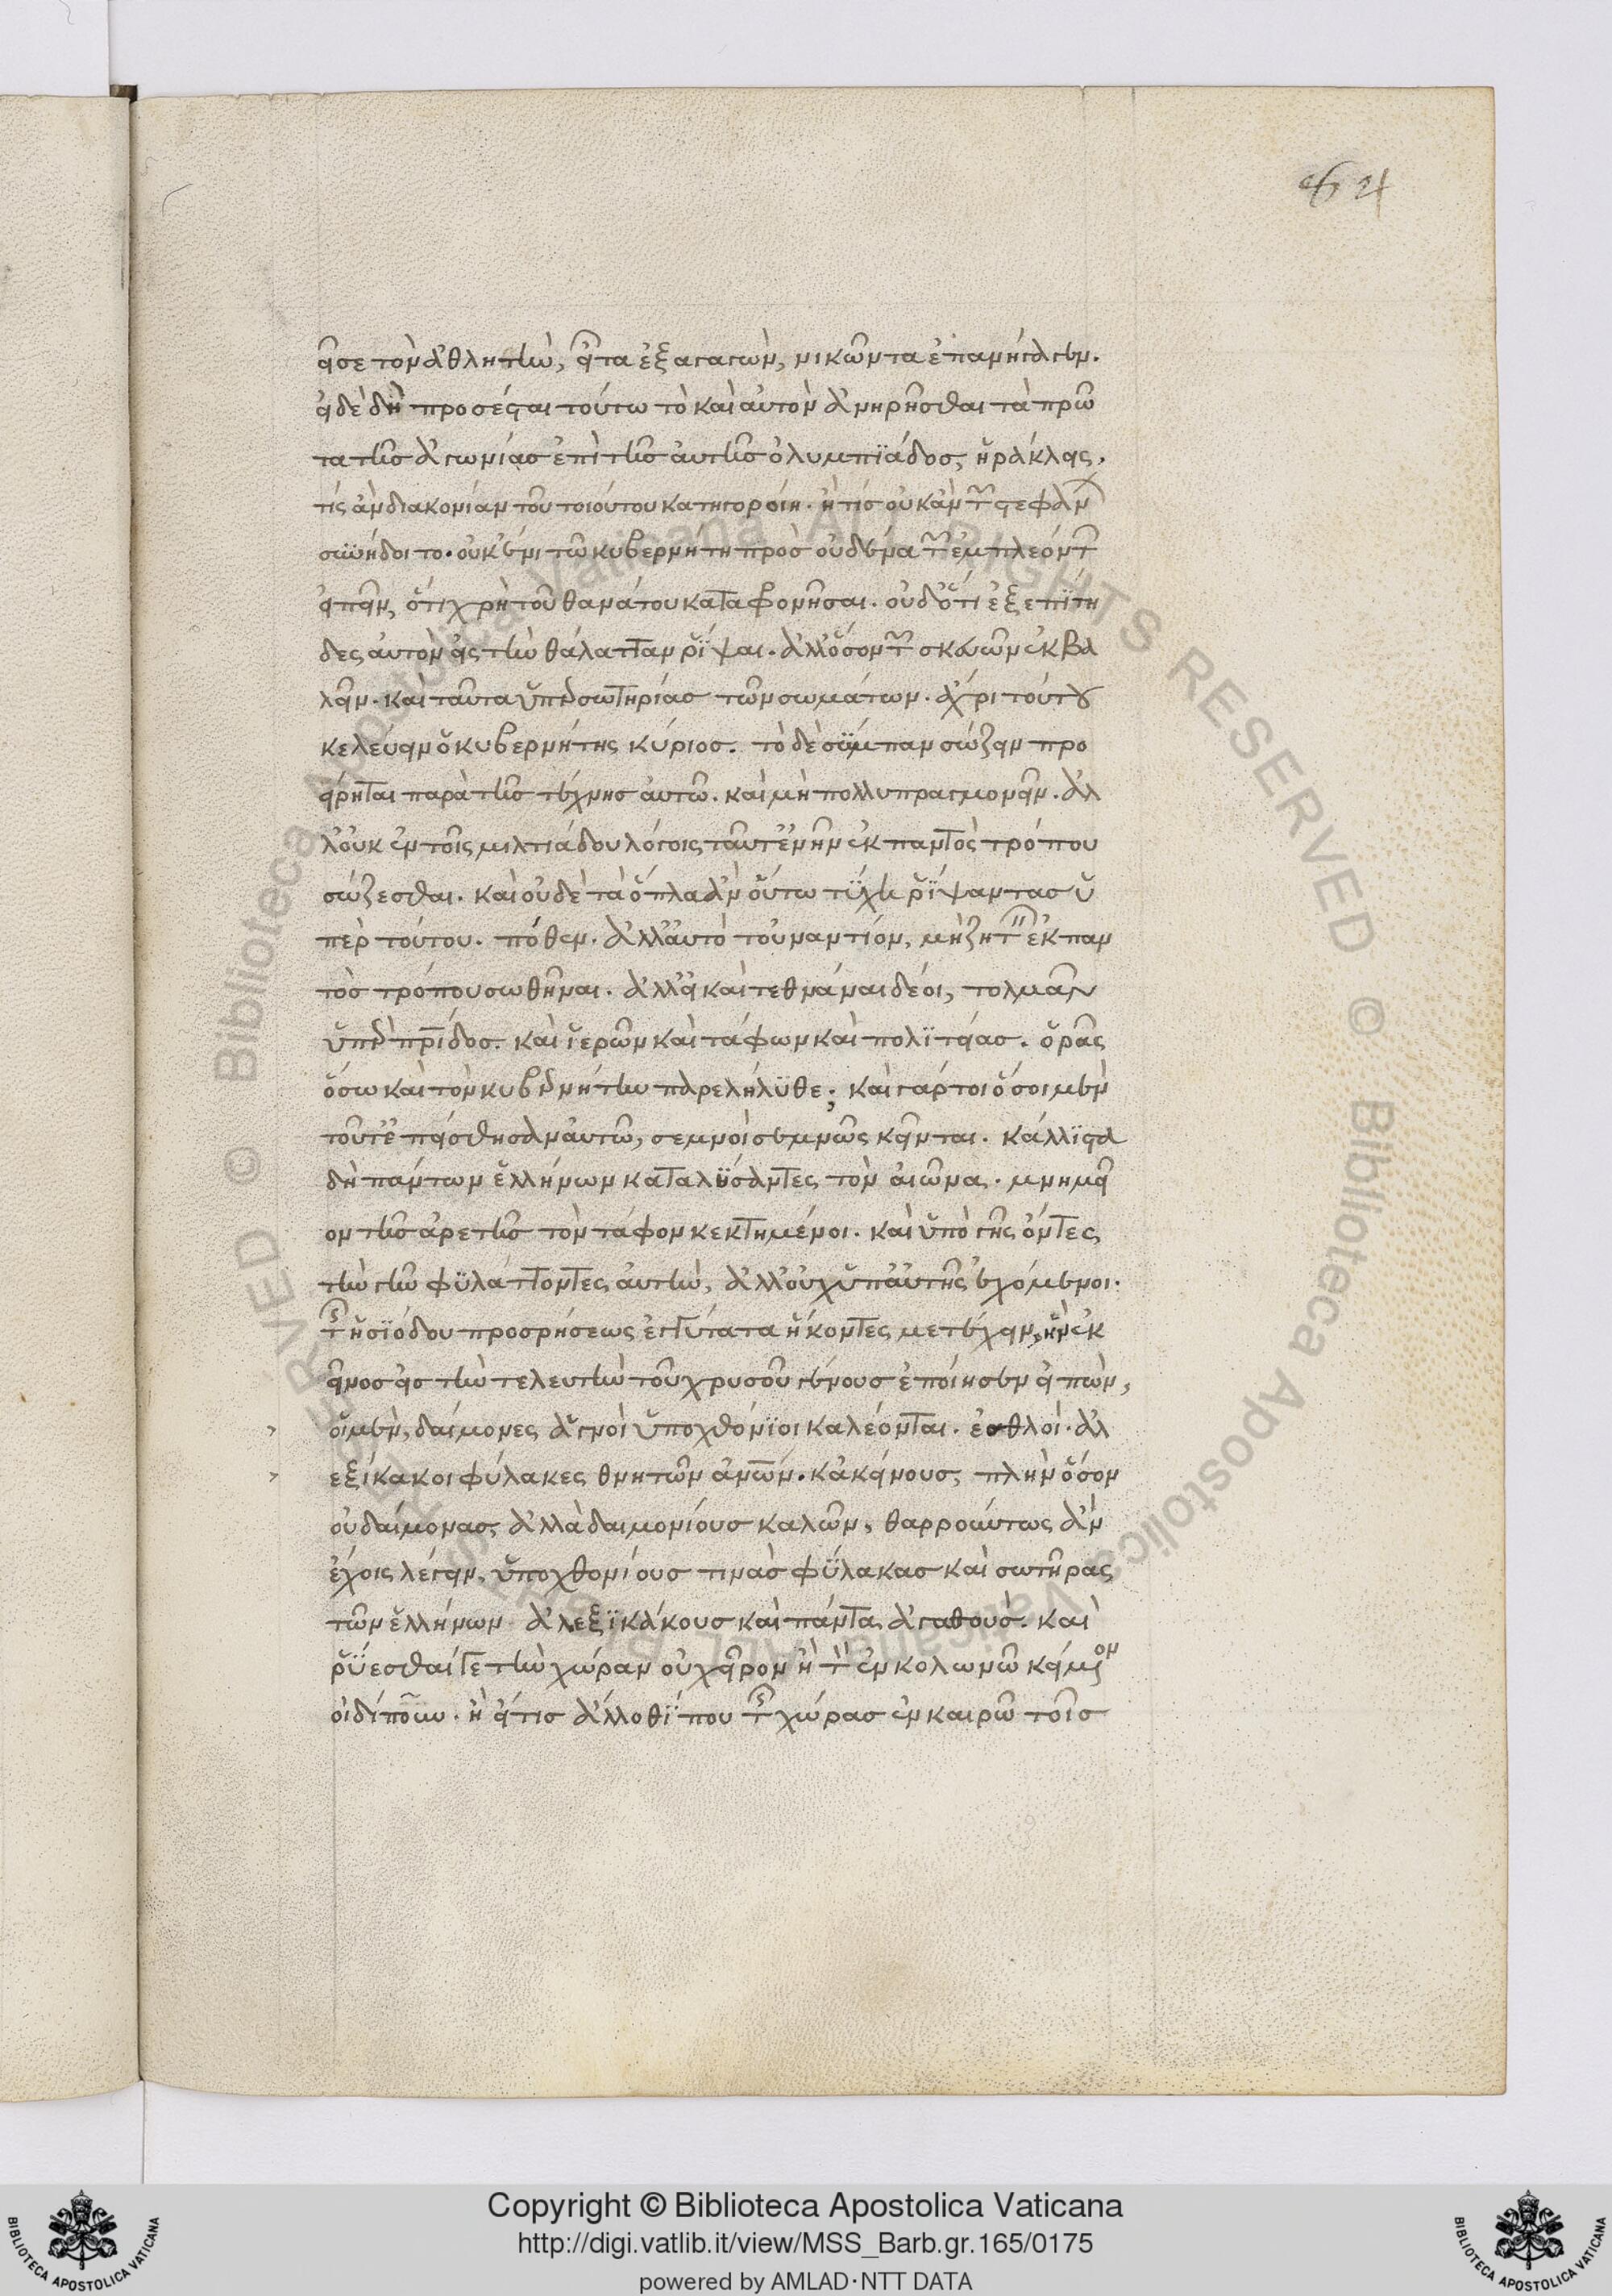 64
ᾖσε τὸν ἀθλητὴν, εἶτα ἐξαγαγὼν, νικῶντα ἐπανήγαγεν.
εἰ δὲ δὴ προσέσται τούτω τὸ καὶ αὐτὸν ἀνῃρῆσθαι τὰ πρῶ
τα τῆς ἀγωνίας ἐπὶ τῆς αὐτῆς ὀλυμπιάδος, ἡράκλεις,
τίς ἂν διακονίαν τοῦ τοιούτου κατηγοροίη. ἢ τίς οὐκ ἂν τῶν στεφάνων
συνήδοιτο. οὐκ ἔνι τῶ κυβερνήτη πρὸς οὐδένα τῶν ἐμπλεόντων
εἰπεῖν, ὅτι χρὴ τοῦ θανάτου καταφρονῆσαι. οὐδ' ὅτι ἐξεπίτη
δες αὐτὸν εἰς τὴν θάλατταν ῥίψαι. ἀλλ' ὅσον τῶν σκευῶν ἐκβα
λεῖν. καὶ ταῦτα ὑπὲρ σωτηρίας τῶν σωμάτων. ἄχρι τούτου
κελεύειν ὁ κυβερνήτης κύριος. τὸ δὲ σύμπαν σώζειν προ
είρηται παρὰ τῆς τέχνης αὐτῶ. καὶ μὴ πολυπραγμονεῖν. ἀλ
λ' οὐκ ἐν τοῖς μιλτιάδου λόγοις ταῦτ' ἐνῆν ἐκ παντὸς τρόπου
σώζεσθαι. καὶ οὐδὲ τὰ ὅπλα ἂν οὕτω τύχη ῥίψαντας ὑ
πὲρ τούτου. πόθεν. ἀλλ' αὐτὸ τοὐναντίον, μὴ ζητεῖν ἐκ παν
τὸς τρόπου σωθῆναι. ἀλλ' εἰ καὶ τεθνάναι δέοι, τολμᾶν
ὑπὲρ πατρίδος. καὶ ἱερῶν καὶ τάφων καὶ πολιτείας. ὁρᾶς
ὅσω καὶ τὸν κυβερνήτην παρελήλυθε; καὶ γάρ τοι ὅσοι μὲν
τοῦτ' ἐπείσθησαν αὐτῶ, σεμνοὶ σεμνῶς κεῖνται. κάλλιστα
δὴ πάντων ἑλλήνων καταλύσαντες τὸν αἰῶνα. μνημεῖ
ον τῆς ἀρετῆς τὸν τάφον κεκτημένοι. καὶ ὑπὸ γῆς ὄντες
τὴν γῆν φυλάττοντες αὐτὴν, ἀλλ' οὐχ ὑπ' αὐτῆς ἐχόμενοι.
τῆς ἡσιόδου προσρήσεως ἐγγύτατα ἥκοντες μετέχειν, ἣν ἐκ
εῖνος εἰς τὴν τελευτὴν τοῦ χρυσοῦ γένους ἐποίησεν εἰπὼν,
οἱ μὲν, δαίμονες ἁγνοὶ ὑποχθόνιοι καλέονται. ἐσθλοὶ. ἀλ
εξίκακοι φύλακες θνητῶν ἀνθρώπων. κἀκείνους πλὴν ὅσον
οὐ δαίμονας, ἀλλὰ δαιμονίους καλῶν, θαρρούντως ἂν
ἔχοις λέγειν, ὑποχθονίους τινὰς φύλακας καὶ σωτῆρας
τῶν ἑλλήνων ἀλεξικάκους καὶ πάντα ἀγαθούς. καὶ
ῥύεσθαί γε τὴν χώραν οὐ χεῖρον ἢ τὸν ἐν κολωνῶ κείμενον
οἰδίπουν. ἢ εἴ τις ἄλλοθί που τῆς χώρας ἐν καιρῶ τοῖς
© Biblioteca Apostolica Vaticana ALL RIGHTS RESERVED
Copyright © Biblioteca Apostolica Vaticana
http://digi.vatlib.it/view/MSS_Barb.gr.165/0175
powered by AMLAD·NTT DATA
BIBLIOTECA APOSTOLICA VATICANA
BIBLIOTECA APOSTOLICA VATICANA